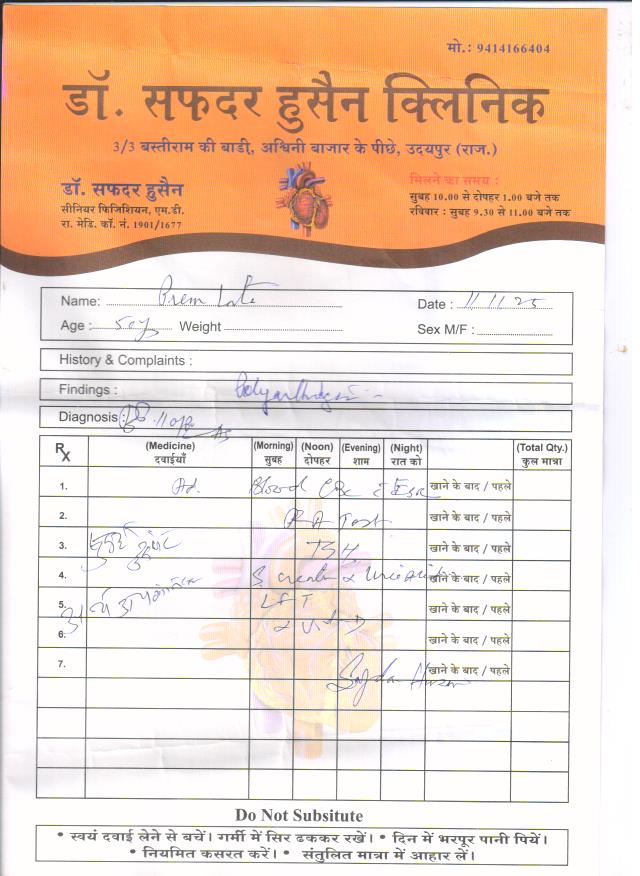 मो.: 9414166404
डॉ. सफदर हुसैन क्लिनिक
3/3 बस्तीराम की बाडी, अश्विनी बाजार के पीछे, उदयपुर (राज.)
डॉ. सफदर हुसैन
सीनियर फिजिशियन, एम.डी.
रा. मेडि. कॉ. नं. 1901/1677
मिलने का समय :
सुबह 10.00 से दोपहर 1.00 बजे तक
रविवार : सुबह 9.30 से 11.00 बजे तक
Name: Prem Lata Date : 11/11/25
Age : 50y Weight Sex M/F :
History & Complaints :
Findings :
Diagnosis :
Rx (Medicine) दवाईयाँ (Morning) सुबह (Noon) दोपहर (Evening) शाम (Night) रात को (Total Qty.) कुल मात्रा
1. Ad. Blood CBC & ESR खाने के बाद / पहले
2. RA Test खाने के बाद / पहले
3. TSH खाने के बाद / पहले
4. S creatin & Uric Acid खाने के बाद / पहले
5. LFT खाने के बाद / पहले
6. & Vit D खाने के बाद / पहले
7. खाने के बाद / पहले
Do Not Subsitute
• स्वयं दवाई लेने से बचें। गर्मी में सिर ढककर रखें। • दिन में भरपूर पानी पियें।
• नियमित कसरत करें। • संतुलित मात्रा में आहार लें।